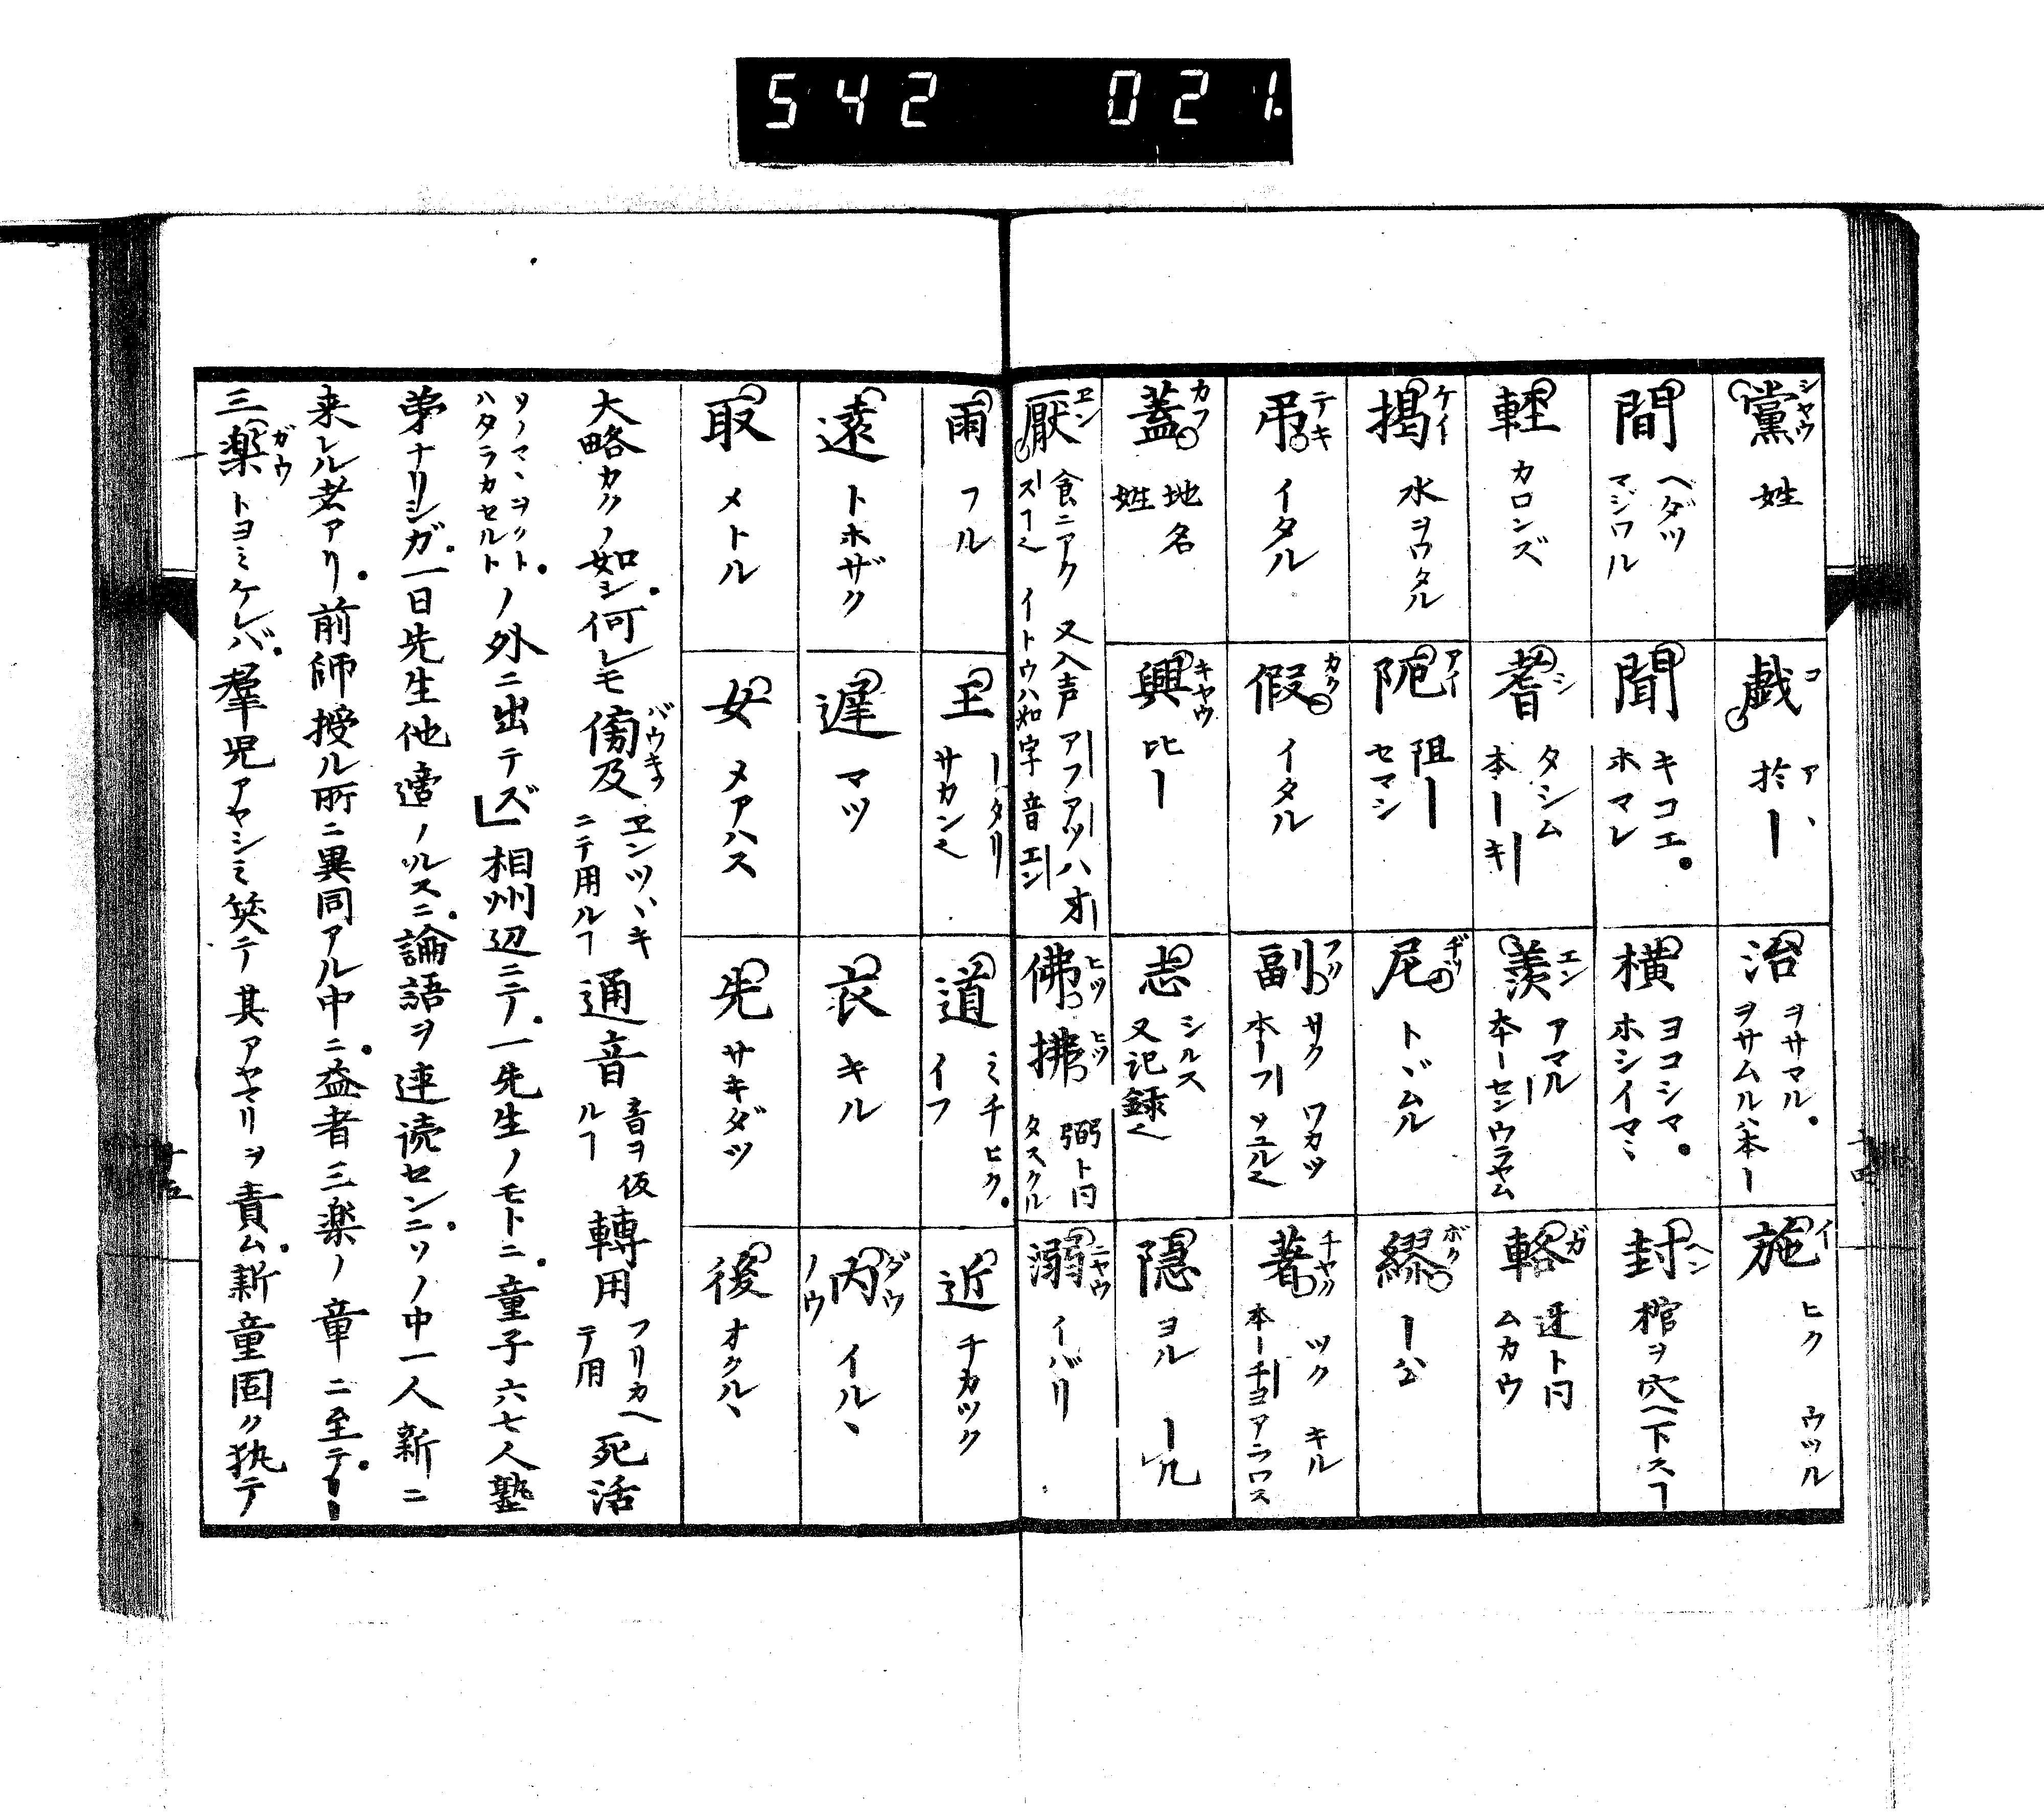 542 021.
黨 シヤウ 姓
戯 コ 於ー ア、
治 ヲサマル。ヲサムルハ本ー
施 イ ヒク ウツル
間 ヘダツ マジワル
聞 キコエ。ホマレ
横 ヨコシマ。ホシイマヽ
封 ヘン 棺ヲ穴ヘ下スヿ
軽 カロンズ
耆 シ タシム 本ーキ
羨 エン アマル 本ーセンウラヤム
輅 ガ 迓ト同 ムカウ
掲 ケイ 水ヲワタル
阨 アイ 阻ー セマシ
尼 ヂツ トヾムル
繆 ボク ー公
弔 テキ イタル
假 カク イタル
副 フク サク ワカツ 本ーフ ツユル
著 チヤク ツク キル 本ーチヨアラワス
蓋 カフ 地名 姓
興 キヤウ 比ー
志 シルス 又記録
隠 ヨル ー几
厭 エン 食ニアク 又入声 アフアツハオースヿ イトウハ如字 音エン
佛 ヒツ 拂 ヒツ 弼ト同 タスクル
溺 ニヤウ イバリ
雨 フル
王 ータリ サカン
道 ミチヒク。イフ
近 チカツク
遠 トホザク
遅 マツ
衣 キル
内 ダウ ノウ イルヽ
取 メトル
女 メアハス
先 サキダツ
後 オクルヽ
大略カクノ如シ。何レモ傍及 バウキフ エンツヾキニテ用ルヿ 通音 音ヲ仮ルヿ 轉用 フリカヘテ用 死活
ソノマヽヲクト。ハタラカセルト ノ外ニ出テズ」相州辺ニテ。一先生ノモトニ。童子六七人塾
弟ナリシガ。一日先生他適ノルスニ。論語ヲ連読センニ。ソノ中一人新ニ
来レル者アリ。前師授ル所ニ異同アル中ニ。益者三楽ノ章ニ至テ。
三楽 ガウ トヨミケレバ。羣児アヤシミ笑テ其アヤマリヲ責ム。新童固ク執テ